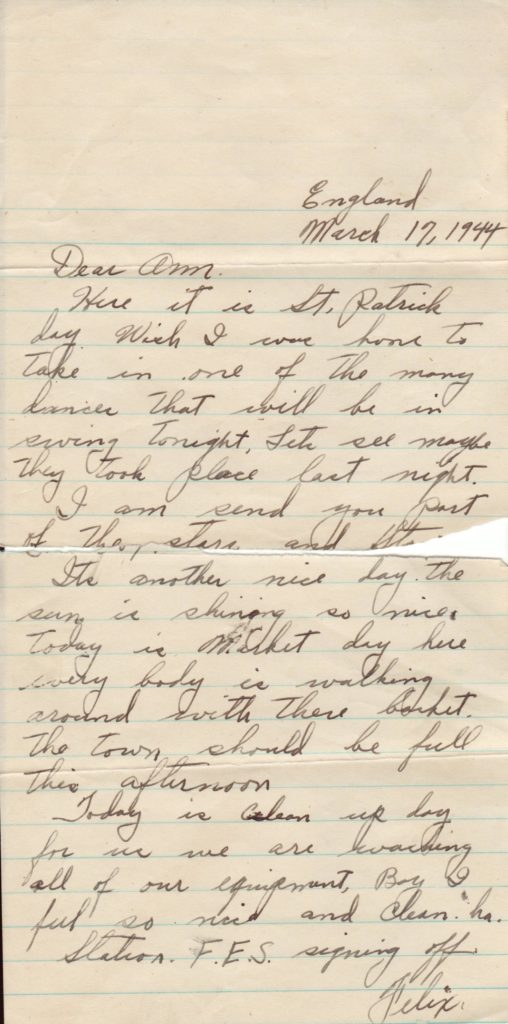 England
March 17, 1944
Dear Ann.
Here it is St. Patrick
day. Wish I was home to
take in one of the many
dances that will be in
swing tonight, Lets see maybe
they took place last night.
I am send you part
of the stars and
Its another nice day. the
sun is shining so nice.
today is Market day here
every body is walking
around with there basket.
the town should be full
this afternoon
Today is clean up day
for us we are washing
all of our equipment, Boy I
feel so nice and clean. ha.
Station. F.E.S. signing off
Felix.